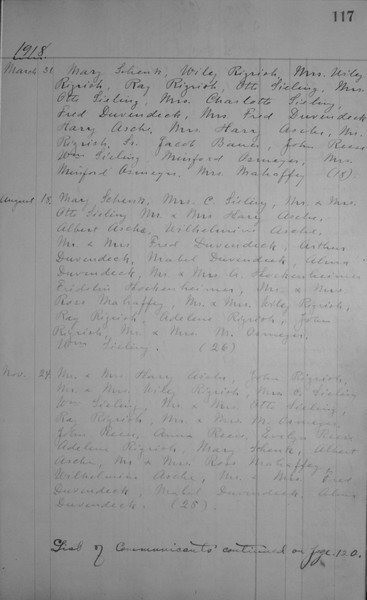 117
1918.
March 31. Mary Schenk, Wiley Rigrish, Mrs. Wiley
Rigrish, Ray Rigrish, Otto Sieling, Mrs.
Otto Sieling, Mrs. Charlotte Sieling,
Fred Duvendeck, Mrs. Fred Duvendeck
Harry Asche, Mrs Harry Asche, Mr.
Rigrish, Sr. Jacob Bauer, John Rees
Wm Sieling, Minford Asmeyer, Mrs.
Minford Asmeyer, Mrs Mahaffey (18)
August 18, Mary Schenk, Mrs. C. Sieling, Mr. & Mrs.
Otto Sieling Mr. & Mrs Harry Asche,
Albert Asche, Wilhelmine Asche,
Mr. & Mrs. Fred Duvendeck, Arthur
Duvendeck, Mabel Duvendeck, Alma
Duvendeck, Mr & Mrs. A.
Fridolin Mr & Mrs.
Ross Mahaffey, Mr. & Mrs. Wiley Rigrish,
Ray Rigrish, Adelene Rigrish, John
Rigrish, Mr. & Mrs. M. Asmeyer,
Wm Sieling. (26)
Nov. 24. Mr. & Mrs Harry Asche, John Rigrish,
Mr. & Mrs. Wiley Rigrish, Mrs C. Sieling
Wm Sieling, Mr. & Mrs Otto Sieling,
Ray Rigrish, Mr. & Mrs M. Asmeyer,
John Rees, Anna Rees, Evelyn Rees
Adelene Rigrish, Mary Schenk, Albert
Asche, Mr. & Mrs Ross Mahaffey,
Wilhelmine Asche, Mr. & Mrs. Fred
Duvendeck, Mabel Duvendeck, Alma
Duvendeck. (25).
List of Communicants continued on page 120.